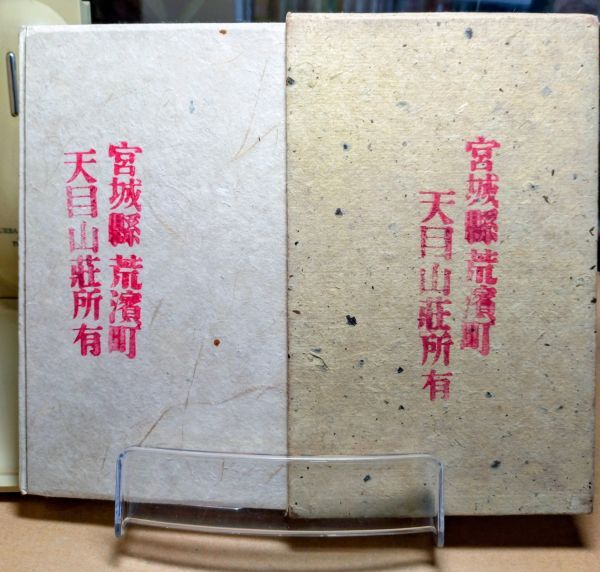 宮城縣 荒濱町
天目山莊所有
宮城縣 荒濱町
天目山莊所有